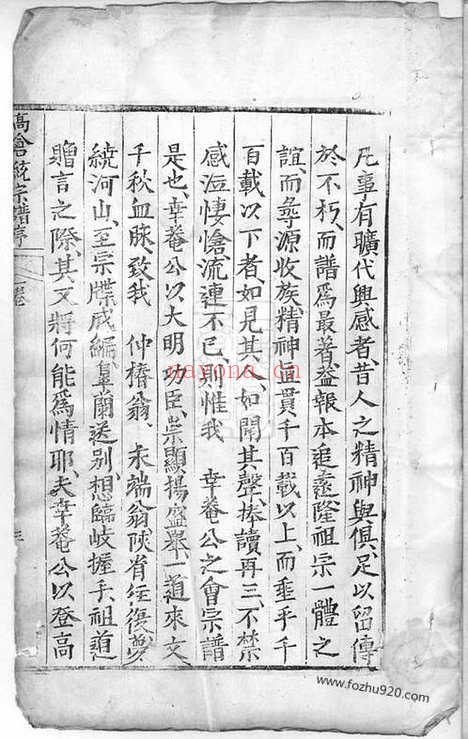 凡事有曠代興感者昔人之精神與俱足以留傳
於不朽而譜爲最著蓋報本追遠隆祖宗一體之
誼而尋源收族精神直貫千百載以上而垂乎千
百載以下者如見其人如聞其聲捧讀再三不禁
感泣悽愴流連不已則惟我 幸菴公之會宗譜
是也幸菴公以大明功臣崇顯揚盛舉一道來文
千秋血脉致我 仲椿翁 來端翁陝省往復夢
繞河山至宗牒成編臯蘭送别想臨岐握手祖道
贈言之際其又將何能爲情耶夫幸菴公以登高
統宗譜序
卷
nayona.cn
www.fozhu920.com